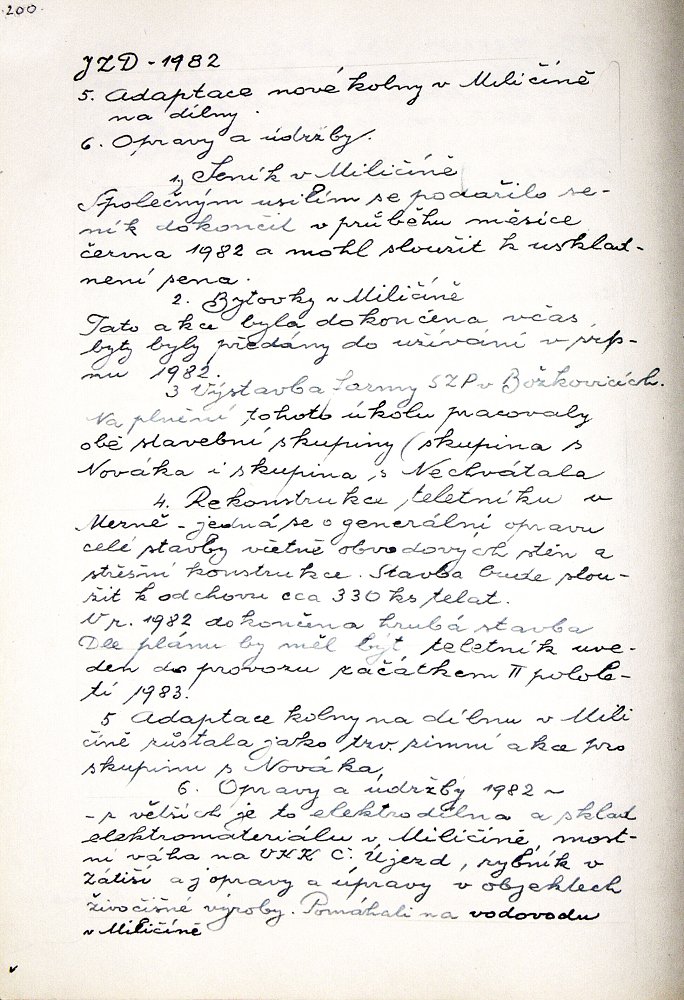 200.
JZD - 1982
5. Adaptace nové kolny v Miličíně
na dílny.
6. Opravy a údržby.
1, Seník v Miličíně
Společným usilím se podařilo se-
ník dokončit v průběhu měsíce
června 1982 a mohl sloužit k usklad-
není sena.
2. Bytovky v Miličíně
Tato akce byla dokončena včas,
byty byly předány do užívání v srp-
nu 1982.
3 Výstavba farmy SZP v Božkovicích.
Na plnění tohoto úkolu pracovaly
obě stavební skupiny (skupina s
Nováka i skupina s Nechvátala
4. Rekonstrukce teletníku v
Mezně - jedná se o generální opravu
celé stavby včetně obvodových stěn a
střešní konstrukce. Stavba bude slou-
žit k odchovu cca 330 ks telat.
V r. 1982 dokončena hrubá stavba
Dle plánu by měl být teletník uve-
den do provozu začátkem II polole-
tí 1983.
5 Adaptace kolny na dílnu v Mili
číně zůstala jako tzv. zimní akce pro
skupinu s Nováka,
6. Opravy a údržby 1982 -
- z větších je to elektrodílna a sklad
elektromateriálu v Miličíně, most-
ní váha na VKK Č. Újezd, rybník v
Zátiší a j opravy a úpravy v objektech
živočišné výroby. Pomáhali na vodovodu
v Miličíně